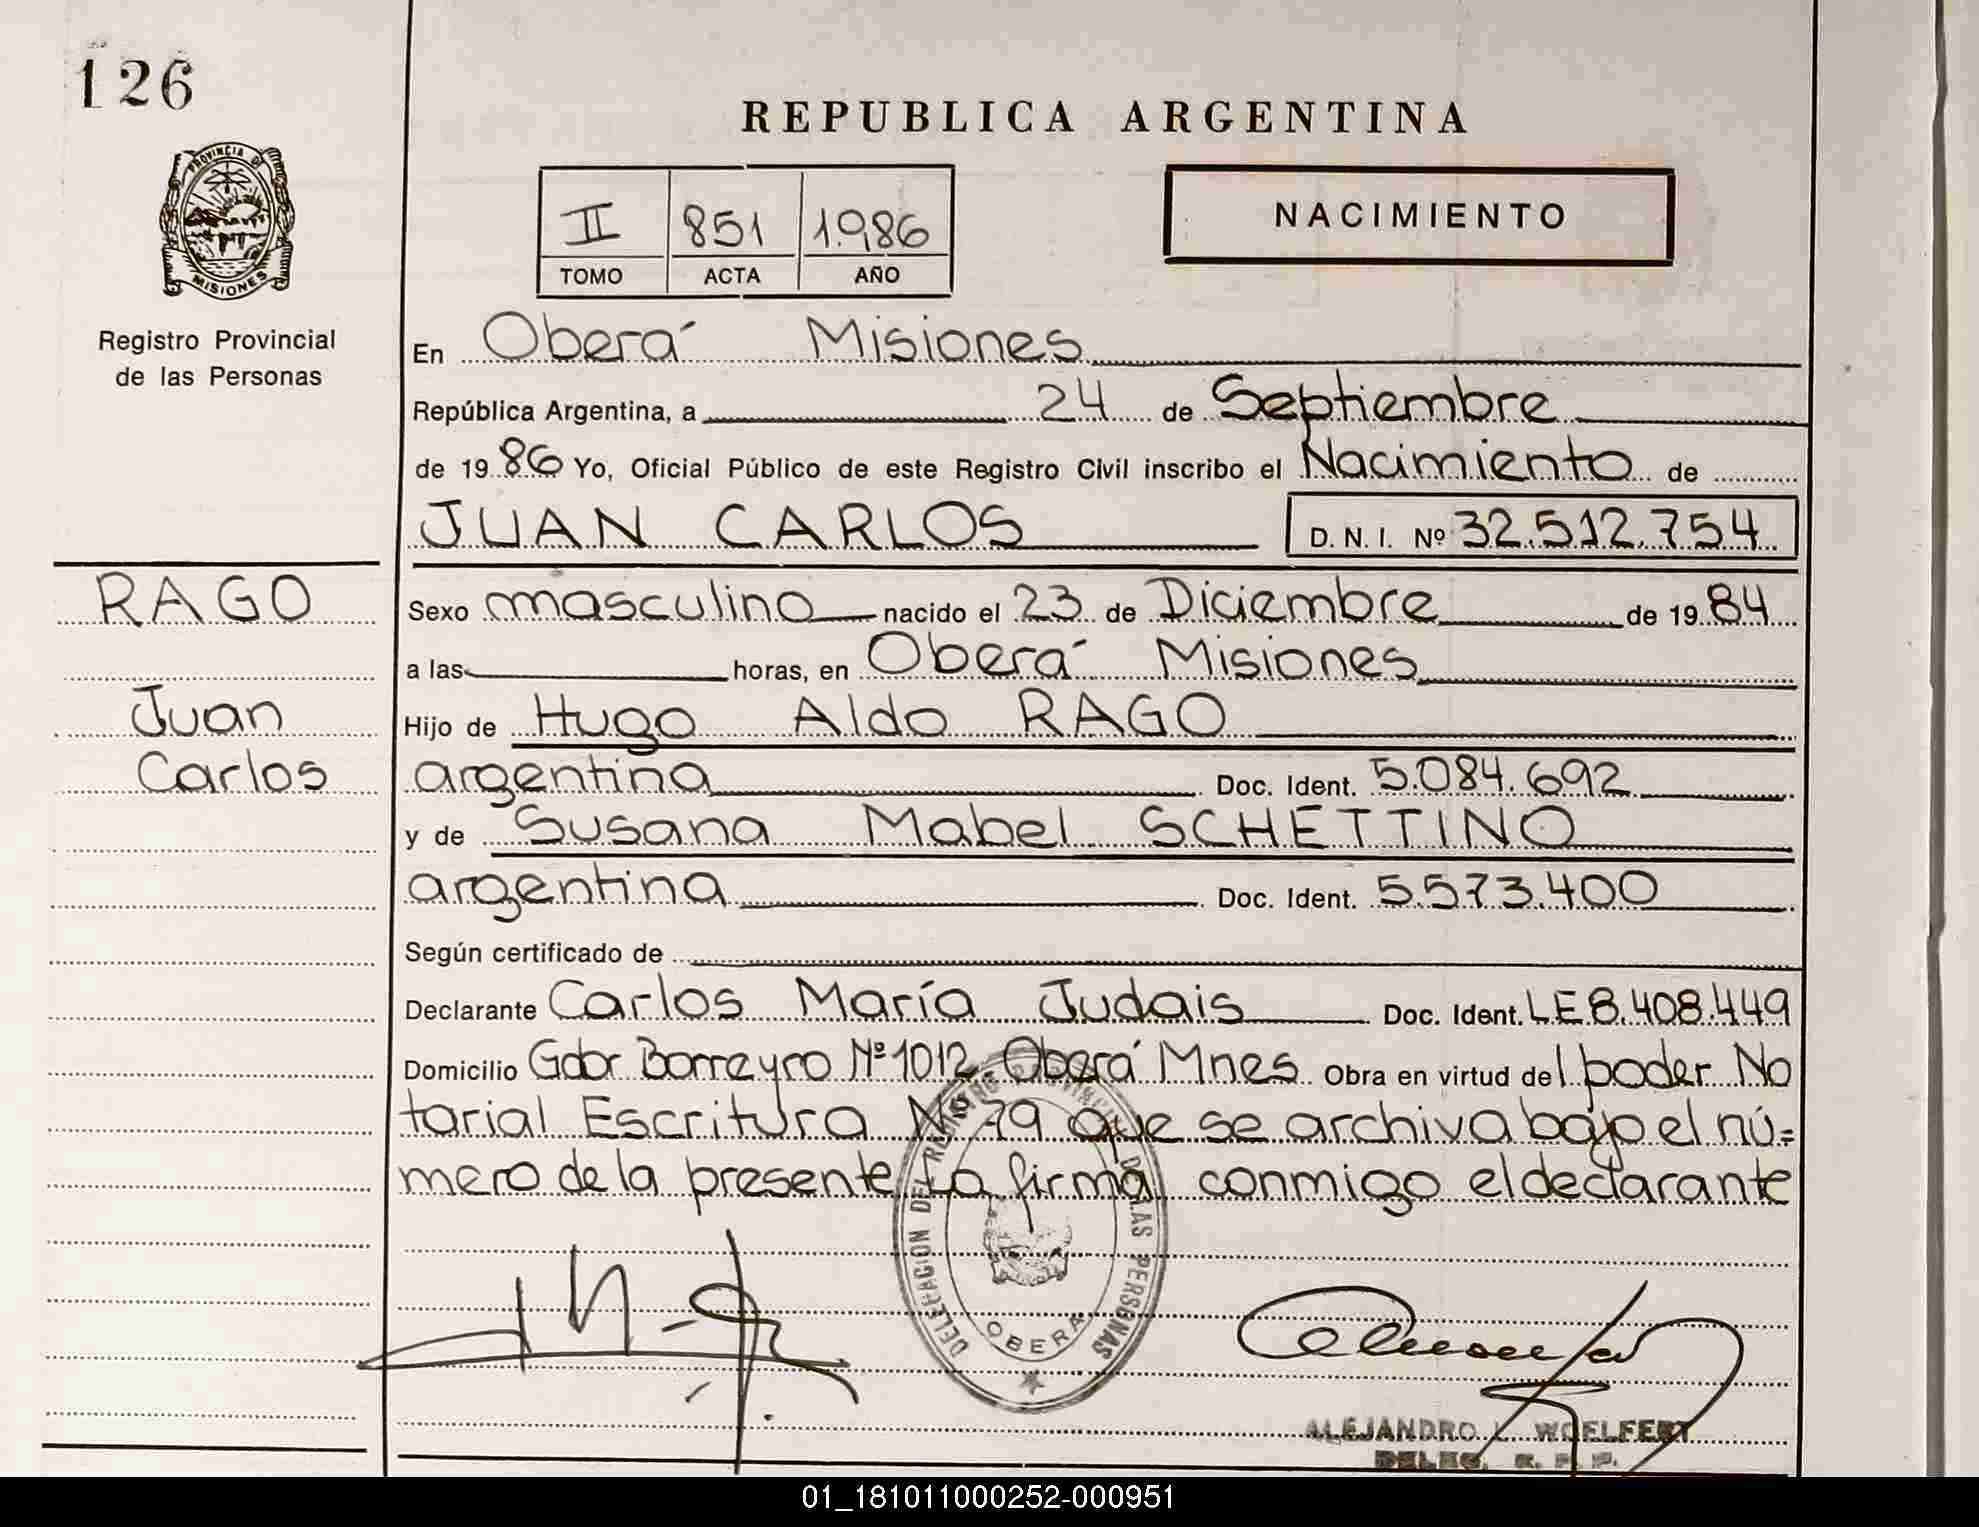 126
REPUBLICA ARGENTINA
PROVINCIA DE
MISIONES
II 851 1986
TOMO ACTA AÑO
NACIMIENTO
Registro Provincial
de las Personas
En Oberá Misiones
República Argentina, a 24 de Septiembre
de 1986 Yo, Oficial Público de este Registro Civil inscribo el Nacimiento de
JUAN CARLOS D. N. I. Nº 32.512.754
RAGO
Juan
Carlos
Sexo masculino nacido el 23 de Diciembre de 1984
a las horas, en Oberá Misiones
Hijo de Hugo Aldo RAGO
argentina Doc. Ident. 5.084.692
y de Susana Mabel SCHETTINO
argentina Doc. Ident. 5.573.400
Según certificado de
Declarante Carlos María Judais Doc. Ident. LE 8.408.449
Domicilio Gdor Barreyro Nº 1012 Oberá Mnes. Obra en virtud del poder No
tarial Escritura Nº 79 que se archiva bajo el nú=
mero de la presente. La firma conmigo el declarante
DELEGACION DEL REGISTRO PROVINCIAL DE LAS PERSONAS
OBERA
ALEJANDRO L. WOELFERT
DELEG. R. P. P.
01_181011000252-000951